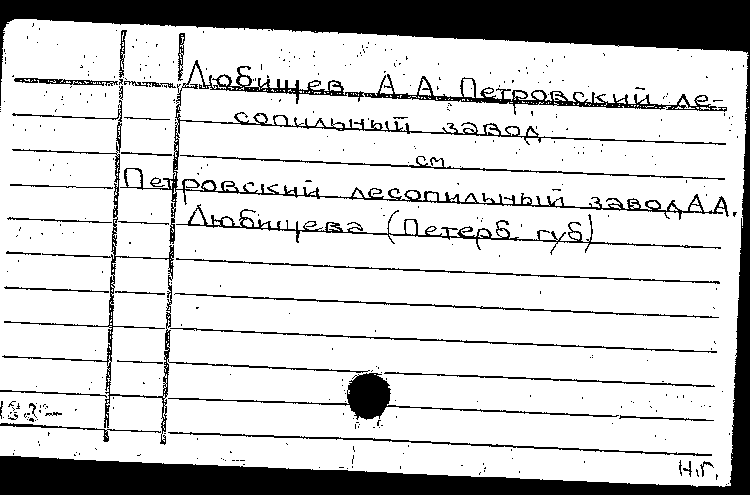 Любищев, А.А. Петровский ле-
сопильный завод
см.
Петровский лесопильный завод А.А.
Любищева (Петерб. губ.)
Н.Г.